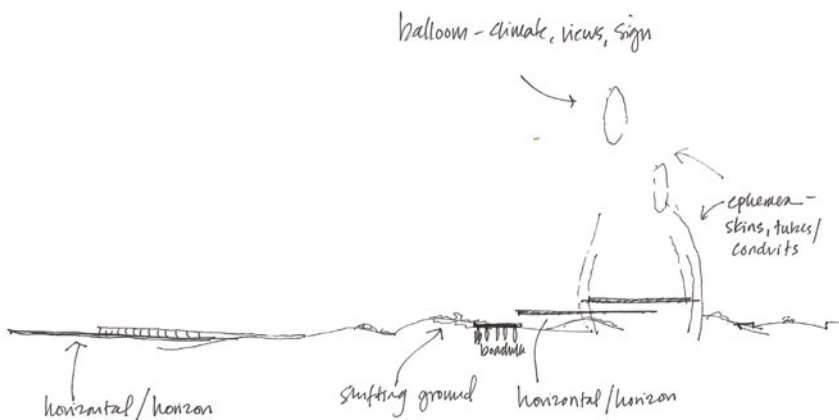 balloom - climate, views, sign
ephemera -
skins, tubes/
conduits
boardwalk
horizontal/horizon
shifting ground
horizontal/horizon